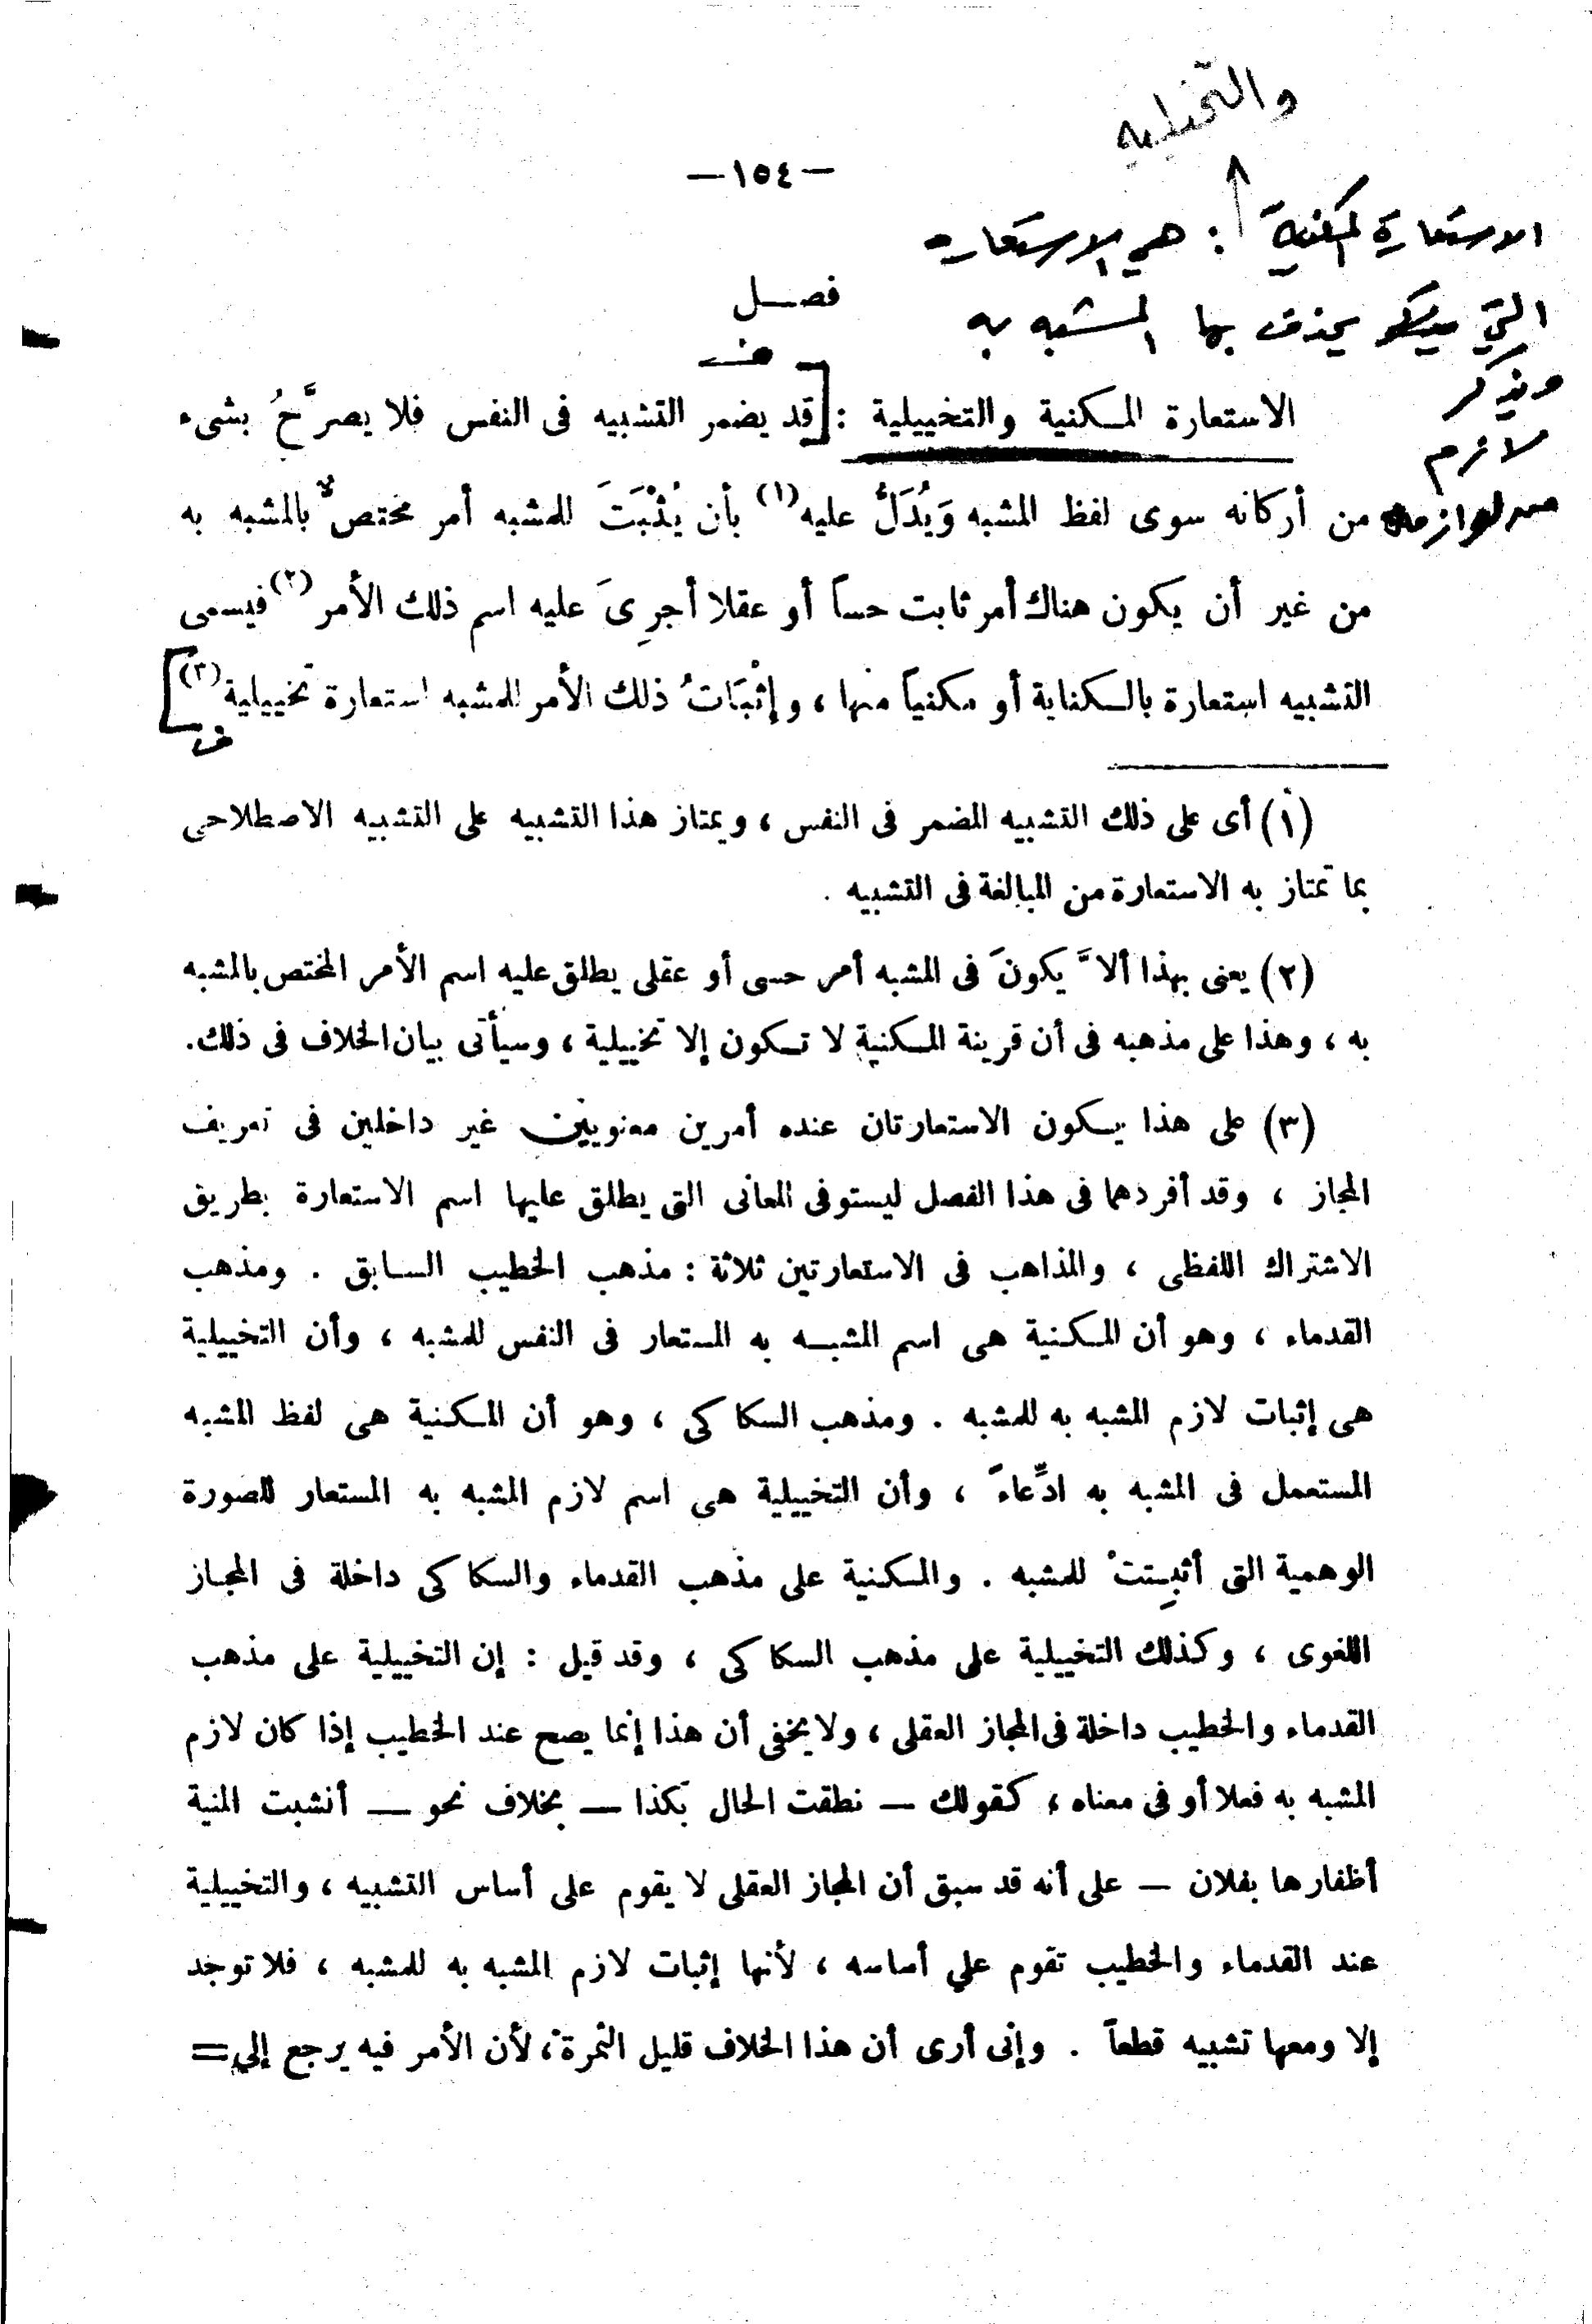 والتخيليه
—١٥٤—
الاستعارة المكنية : هي الاستعاره
التي يحذف بها المشبه به
ويذكر
لازم
من لوازمه
فصل
الاستعارة المكنية والتخييلية : [قد يضمر التشبيه فى النفس فلا يصرَّحُ بشىء
من أركانه سوى لفظ المشبه وَيُدَلُّ عليه(١) بأن يُثْبَتَ للمشبه أمر مختص بالمشبه به
من غير أن يكون هناك أمر ثابت حساً أو عقلا أجرِىَ عليه اسم ذلك الأمر (٢) فيسمى
التشبيه استعارة بالكناية أو مكنياً عنها ، وإثْبَاتُ ذلك الأمر للمشبه استعارة تخييلية(٣)]
(١) أى على ذلك التشبيه المضمر فى النفس ، ويمتاز هذا التشبيه على التشبيه الاصطلاحى
بما تمتاز به الاستعارة من المبالغة فى التشبيه .
(٢) يعنى بهذا ألاَّ يكونَ فى المشبه أمر حسى أو عقلى يطلق عليه اسم الأمر المختص بالمشبه
به ، وهذا على مذهبه فى أن قرينة المكنية لا تكون إلا تخييلية ، وسيأتى بيان الخلاف فى ذلك.
(٣) على هذا يكون الاستعارتان عنده أمرين معنويين غير داخلين فى تعريف
المجاز ، وقد أفردهما فى هذا الفصل ليستوفى المعانى التى يطلق عليها اسم الاستعارة بطريق
الاشتراك اللفظى ، والمذاهب فى الاستعارتين ثلاثة : مذهب الخطيب السابق . ومذهب
القدماء ، وهو أن المكنية هى اسم المشبه به المستعار فى النفس للمشبه ، وأن التخييلية
هى إثبات لازم المشبه به للمشبه . ومذهب السكاكى ، وهو أن المكنية هى لفظ المشبه
المستعمل فى المشبه به ادِّعاءً ، وأن التخييلية هى اسم لازم المشبه به المستعار للصورة
الوهمية التى أثبِتتْ للمشبه . والمكنية على مذهب القدماء والسكاكى داخلة فى المجاز
اللغوى ، وكذلك التخييلية على مذهب السكاكى ، وقد قيل : إن التخييلية على مذهب
القدماء والخطيب داخلة فى المجاز العقلى ، ولا يخفى أن هذا إنما يصح عند الخطيب إذا كان لازم
المشبه به فعلا أو فى معناه ، كقولك — نطقت الحال بكذا — بخلاف نحو — أنشبت المنية
أظفارها بفلان — على أنه قد سبق أن المجاز العقلى لا يقوم على أساس التشبيه ، والتخييلية
عند القدماء والخطيب تقوم على أساسه ، لأنها إثبات لازم المشبه به للمشبه ، فلا توجد
إلا ومعها تشبيه قطعاً . وإنى أرى أن هذا الخلاف قليل الثمرة ، لأن الأمر فيه يرجع إلى =